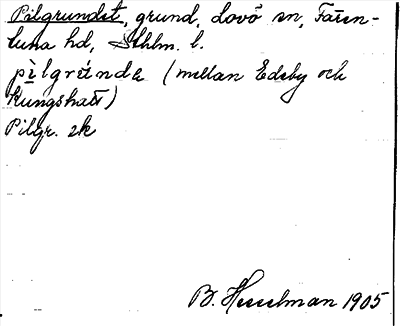 Pilgrundet, grund, Lovö sn, Fären-
tuna hd, Sthlm. l.
pìlgrúndə (mellan Edeby och
Kungshatt)
Pilgr. ek
B. Hesselman 1905